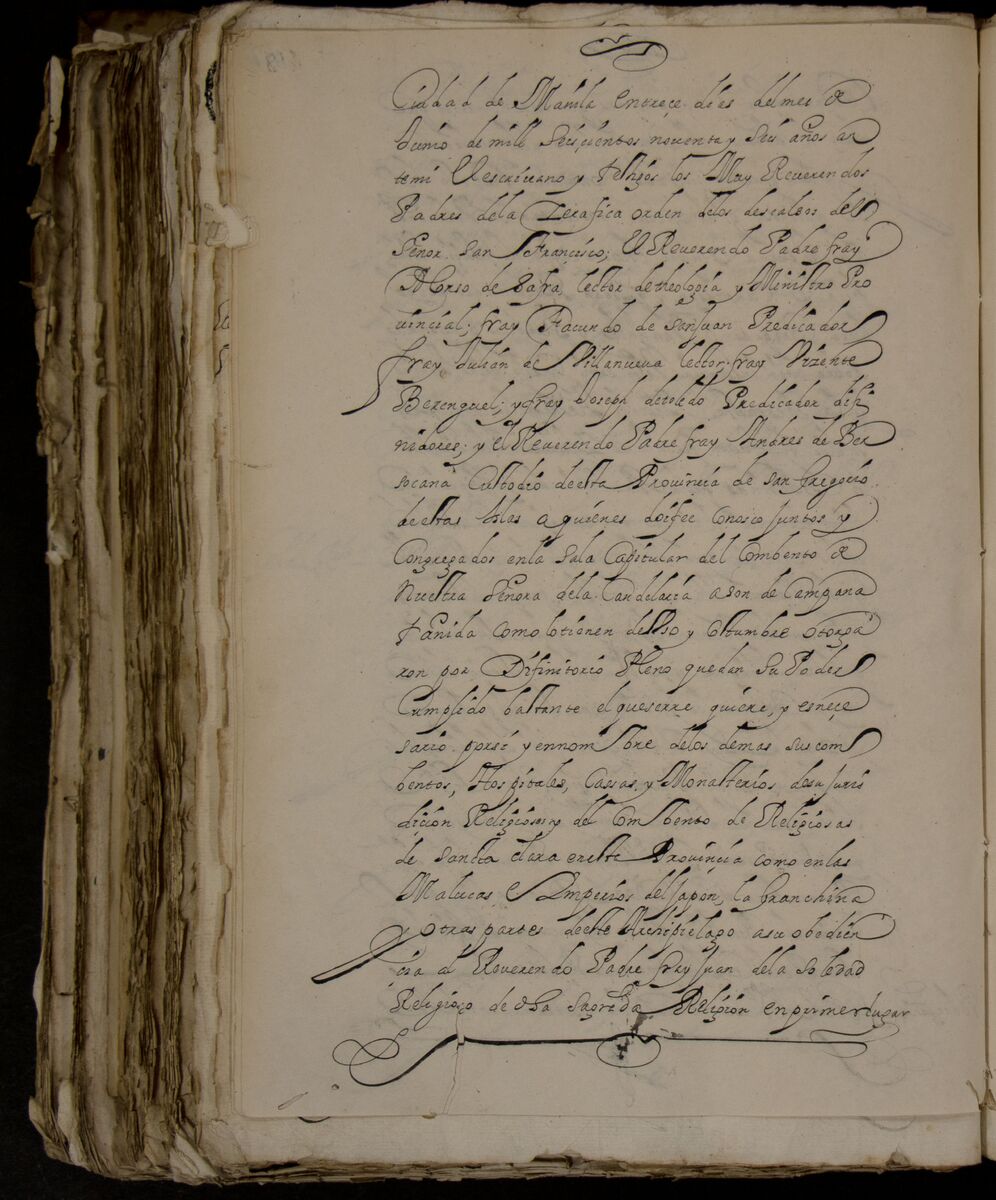 Ciudad de Manila entreçe dias del mes de
Junio de mill seisçientos noventa y seis años an
temi el escrivano y testigos los Muy Reverendos
Padres dela Serafica orden delos descalços del
Señor San Francisco; El Reverendo Padre fray
Alonso de Zafra lector de theologia y Ministro Pro
vincial; fray Facundo de san Juan Predicador
fray Julian de Villanueva lector; fray Vizente
Berenguel; y fray Joseph detoledo Predicador difi
nidores; y el Reverendo Padre fray Andres de Ber
socana Custodio deesta Provincia de san Gregorio
deestas Islas a quienes doifee conosco Juntos y
Congregados enla sala Capitular del Combento de
Nuestra Señora dela Candelaria a son de Campana
tañida como lotienen de Uso y costumbre otorga
ron por Difinitorio Pleno quedan su Poder
Cumplido bastante el queserre quiere, y esneçe
sario porsi y ennombre delos demas suscom
bentos, Hospitales, Cassas, y Monasterios desu Juris
diçion Religiosos y del Combento de Religiosas
de sancta clara eneste Provinçia como enlas
Malucas e Imperios del Japon, la granchina
y otras partes deeste Archipielago asu obedien
cia al Reverendo Padre fray Juan dela soledad
Religioço de dha Sagrada Religion enprimerlugar